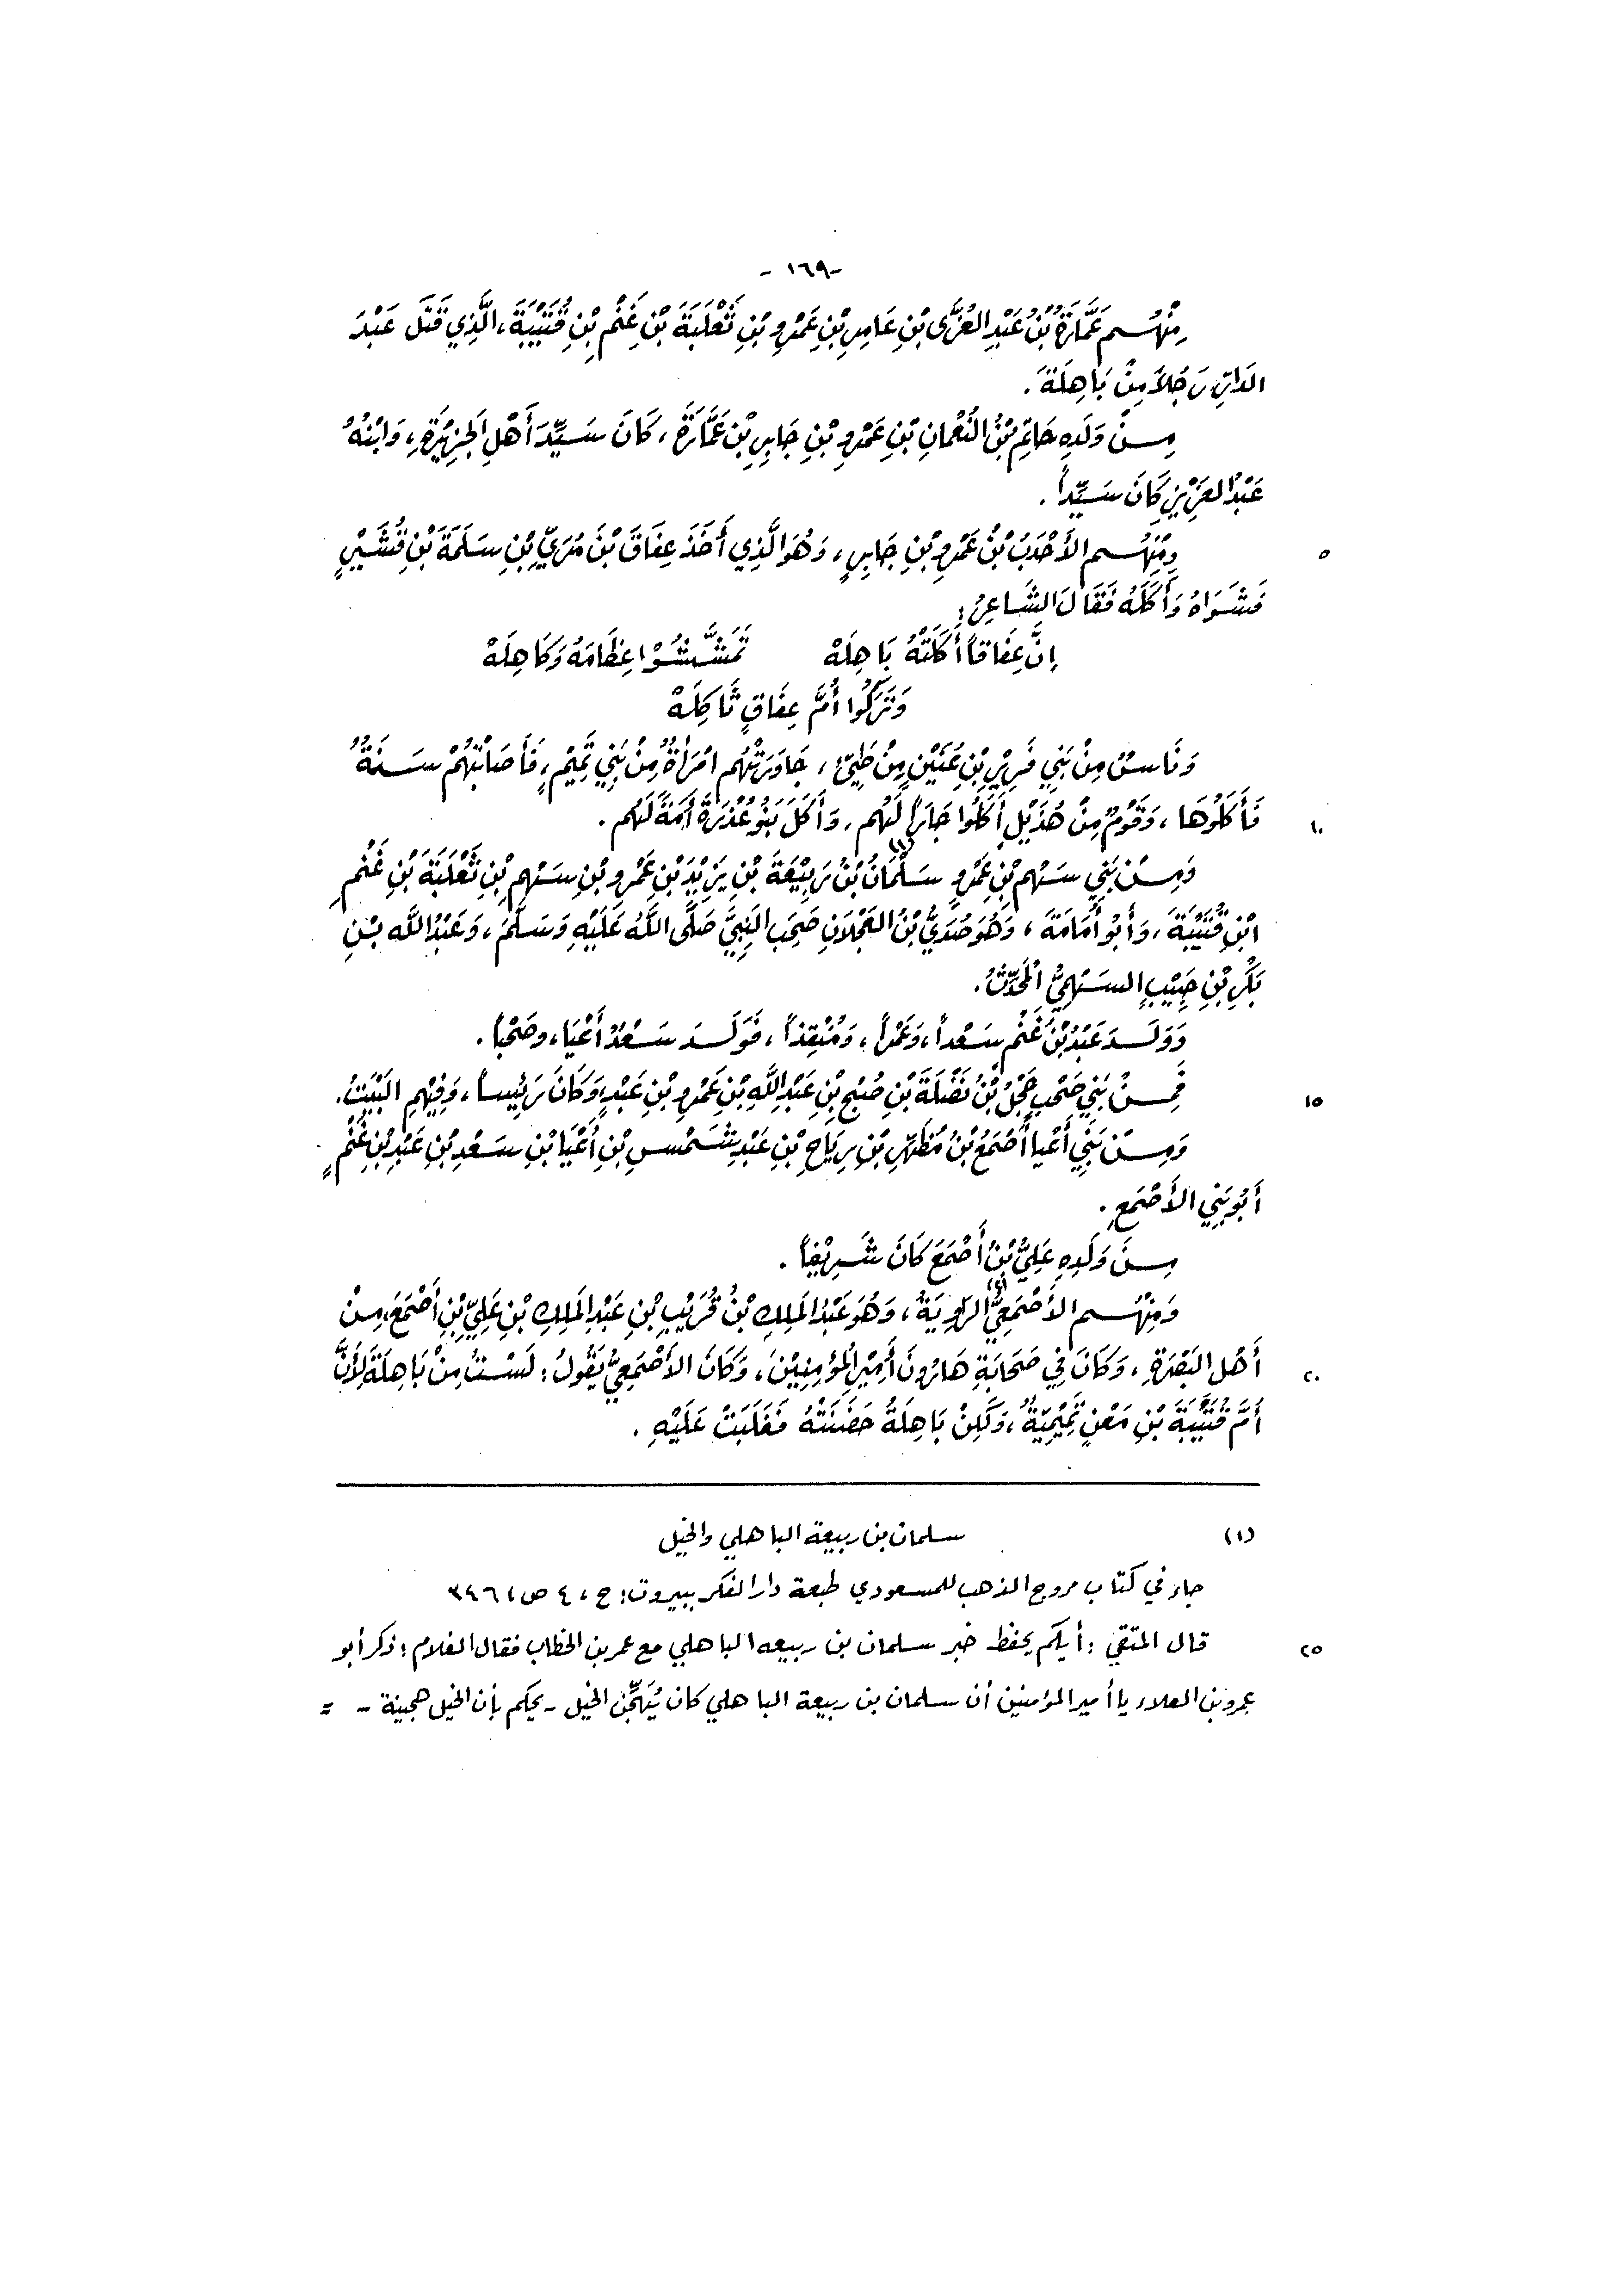 -١٦٩ -
مِنْهُم عَمَّارَةُ بْنُ عَبْدِ العُزَّى بْنِ عَامِرِ بْنِ عَمْرِو بْنِ ثَعْلَبَةَ بْنِ غَنْمِ بْنِ قُتَيْبَةَ، الَّذِي قَتَلَ عَبْدَ
الدَارِ رَجُلاً مِنْ بَاهِلَةَ .
مِنْ وَلَدِهِ حَاتِمُ بْنُ النُّعْمَانِ بْنِ عَمْرِو بْنِ جَابِرِ بْنِ عَمَّارَةَ ، كَانَ سَيِّدَ أَهْلِ الجَزِيْرَةِ ، وَابْنُهُ
عَبْدُ العَزِيْزِ كَانَ سَيِّداً .
وَمِنْهُم الأَحْدَبُ بْنُ عَمْرِو بْنِ جَابِرٍ ، وَهُوَ الَّذِي أَخَذَ عِفَاقَ بْنَ مُرَيِّ بْنِ سَلَمَةَ بْنِ قُشَيْرٍ ٥
فَشَوَاهُ وَأَكَلَهُ فَقَالَ الشَّاعِرُ :
إِنَّ عِفَاقاً أَكَلَتْهُ بَاهِلَهْ تَمَشَّشُوْا عِظَامَهُ وَكَاهِلَهْ
وَتَرَكُوا أُمَّ عِفَاقٍ ثَاكِلَهْ
وَنَاسٌ مِنْ بَنِي فَرِيْرِ بْنِ عُنَيْنٍ مِنْ طَيِّئ ، جَاوَرَتْهُم امْرَأَةٌ مِنْ بَنِي تَمِيْمٍ ، فَأَصَابَتْهُمْ سَنَةٌ
فَأَكَلُوهَا ، وَقَوْمٌ مِنْ هُذَيْلٍ أَكَلُوا جَاراً لَهُم ، وَأَكَلَ بَنُو عُذْرَةَ أَمَةً لَهُم . ١٠
وَمِنْ بَنِي سَهْمِ بْنِ عَمْرٍو سَلْمَانُ (١) بْنُ رَبِيْعَةَ بْنِ يَزِيْدَ بْنِ عَمْرِو بْنِ سَهْمِ بْنِ ثَعْلَبَةَ بْنِ غَنْمِ
ابْنِ قُتَيْبَةَ ، وَأَبُو أُمَامَةَ ، وَهُوَ صُدَيُّ بْنُ العَجْلَانِ صَحِبَ النَّبِيَّ صَلَّى اللَّهُ عَلَيْهِ وَسَلَّمَ ، وَعَبْدُ اللَّه بْنِ
بَكْرِ بْنِ حَبِيْبٍ السَهْمِيُّ المُحَدِّثُ .
وَوَلَدَ عَبْدُ بْنُ غَنْمٍ سَعْداً ، وَعَمْراً ، وَمُنْقِذاً ، فَوَلَدَ سَعْدٌ أَعْيَا ، وصَحْباً .
فَمِنْ بَنِي صَحْبٍ جَحْلُ بْنُ نَضْلَةَ بْنِ صُبْحِ بْنِ عَبْدِ اللَّهِ بْنِ عَمْرِو بْنِ عَبْدٍ وَكَانَ رَئِيساً ، وَفِيْهِم البَيْتُ . ١٥
وَمِنْ بَنِي أَعْيا أَصْمَعُ بْنُ مُظَهِّرِ بْنِ رِيَاحِ بْنِ عَبْدِ شَمْسِ بْنِ أَعْيَا بْنِ سَعْدِ بْنِ عَبْدِ بْنِ غَنْمٍ
أَبُو بَنِي الأَصْمَعِ .
مِنَ وَلَدِهِ عَلِيُّ بْنُ أَصْمَعَ كَانَ شَرِيْفاً .
وَمِنْهُم الأَصْمَعِيُّ (٢) الرَاوِيَةُ ، وَهُوَ عَبْدُ المَلِكِ بْنُ قُرَيْبِ بْنِ عَبْدِ المَلِكِ بْنِ عَلِيِّ بْنِ أَصْمَعَ ، مِنْ
أَهْلِ البَصْرَةِ ، وَكَانَ فِي صَحَابَةِ هَارُونَ أَمِيْرِ المُؤْمِنِيْنَ ، وَكَانَ الأَصْمَعِيُّ يَقُولُ : لَسْتُ مِنْ بَاهِلَةَ لِأَنَّ ٢٠
أُمَّ قُتَيْبَةَ بْنِ مَعْنٍ تَمِيْمِيَّةٌ ، وَلَكِنْ بَاهِلَةُ حَضَنَتْهُ فَغَلَبَتْ عَلَيْهِ .
(١) سلمان بن ربيعة الباهلي والخيل
جاء في كتاب مروج الذهب للمسعودي طبعة دار الفكر ببيروت : ج ، ٤ ص ، ٣٤٦
قال المتقي : أيكم يحفظ خبر سلمان بن ربيعه الباهلي مع عمر بن الخطاب فقال الغلام : ذكر أبو ٢٥
عمرو بن العلاء يا أمير المؤمنين أن سلمان بن ربيعة الباهلي كان يُهَجِّن الخيل - يحكم بأن الخيل هجينة - =